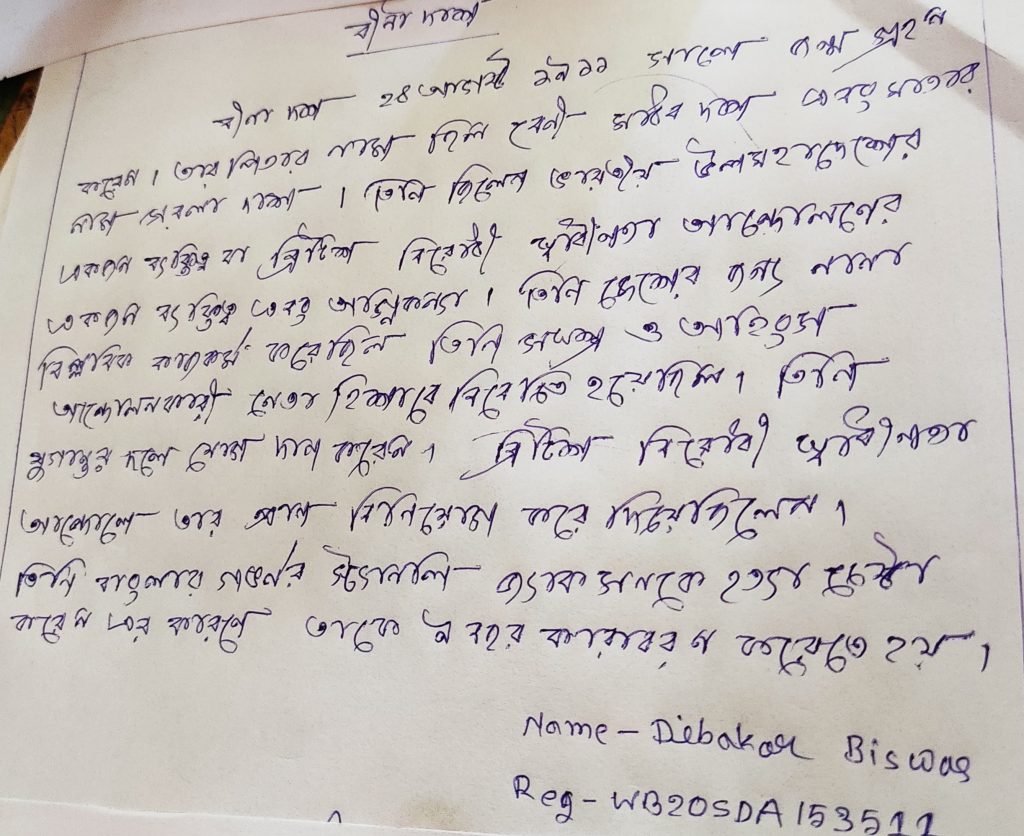 বীনা দাশ
বীনা দাশ ২৪ আগস্ট ১৯১১ সালে জন্ম গ্রহন
করেন । তার পিতার নাম ছিল বেনী মাধব দাশ এবং মাতার
নাম সরলা দাশ । তিনি ছিলেন ভারতীয় উপমহাদেশের
একজন ব্যক্তিত্ব যা ব্রিটিশ বিরোধী স্বাধীনতা আন্দোলনের
একজন ব্যক্তিত্ব এবং অগ্নিকন্যা । তিনি দেশের জন্য নানা
বিপ্লবিক কাজকর্ম করেছিল তিনি সশস্ত্র ও অহিংস
আন্দোলনকারী নেতা হিশাবে বিবেচিত হয়েছিল । তিনি
যুগান্তর দলে যোগ দান করেন । ব্রিটিশ বিরোধী স্বাধীনতা
আন্দোলে তার প্রান বিনিয়োগ করে দিয়েছিলেন ।
তিনি বাংলার গভর্নর স্ট্যানলি জ্যাকসনকে হত্যা চেষ্টা
করেন এর কারণে তাকে ৯ বছর কারাবরণ করেতে হয় ।
Name - Diebakar Biswas
Reg - WB20SDA153511